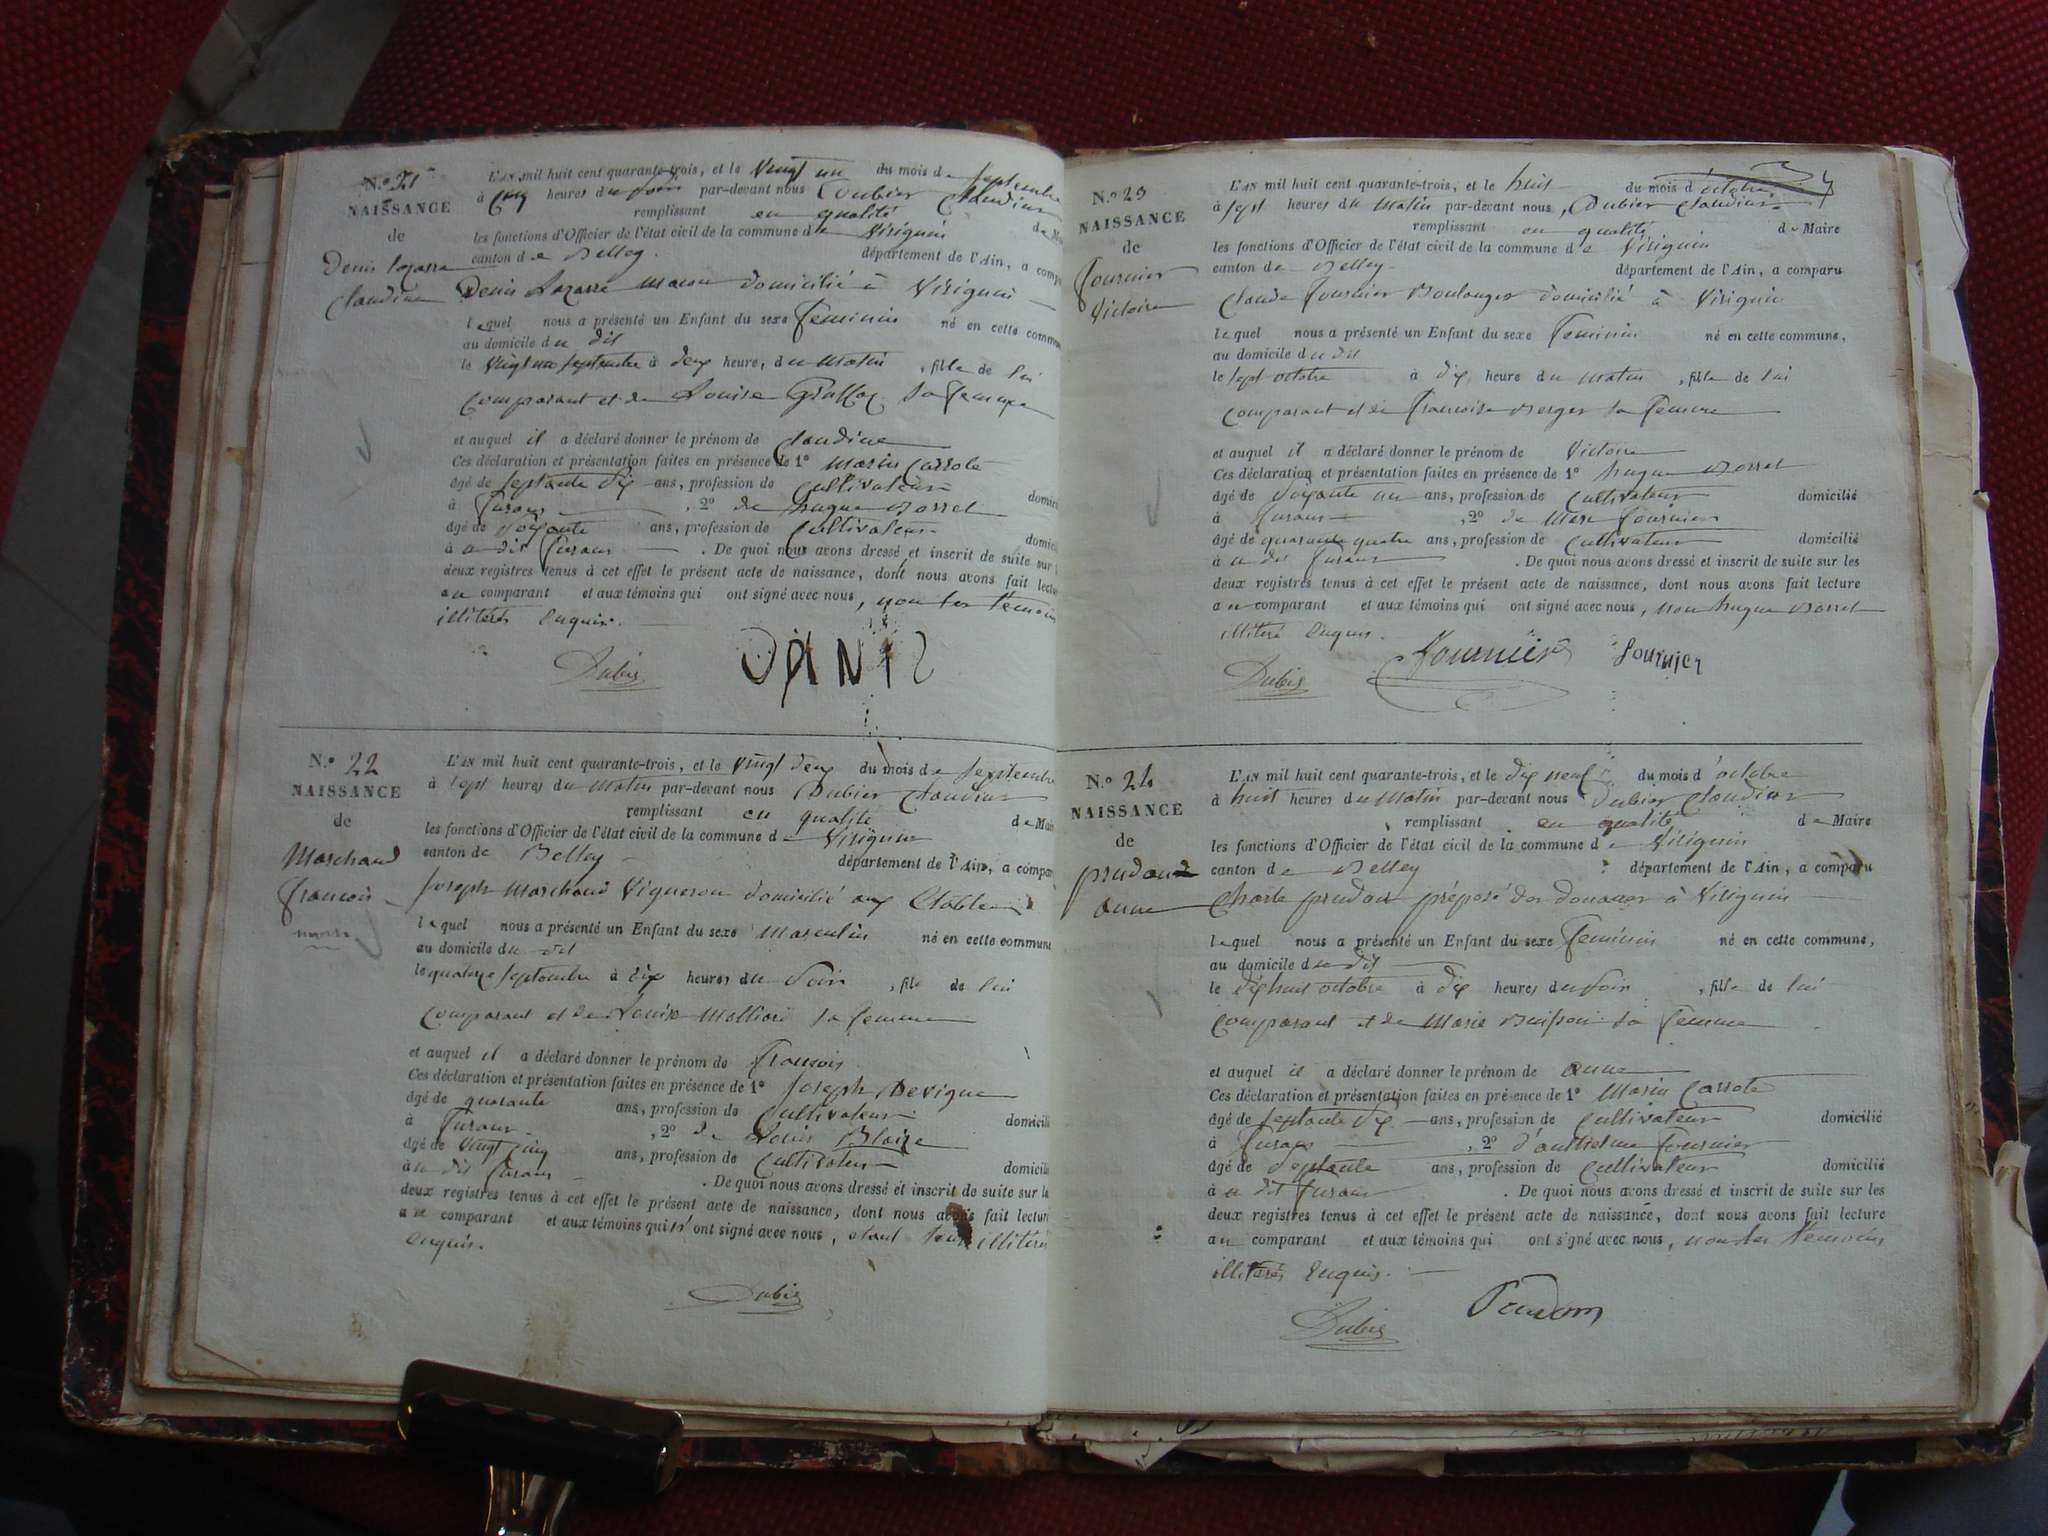 N.º 21
NAISSANCE
de
Denis Lazarre
Claudine
L'AN mil huit cent quarante-trois, et le vingt un du mois de septembre
à cinq heures du soir par-devant nous Dubier Claudius
remplissant en qualité de Maire
les fonctions d'Officier de l'état civil de la commune de Virignin
canton de Belley département de l'Ain, a comparu
Denis Lazarre Macon domicilié à Virignin
lequel nous a présenté un Enfant du sexe feminin né en cette commune
au domicile du dit
le vingt un septembre à deux heure, du matin, fille de lui
comparant et de Louise sa femme
et auquel il a déclaré donner le prénom de Claudine
Ces déclaration et présentation faites en présence de 1º Marin Carrote
âgé de septante dix ans, profession de cultivateur domicilié
à Furans, 2º de hugue Borret
âgé de soixante ans, profession de cultivateur domicilié
à u dit Furans. De quoi nous avons dressé et inscrit de suite sur les
deux registres tenus à cet effet le présent acte de naissance, dont nous avons fait lecture
au comparant et aux témoins qui ont signé avec nous, non les témoins
illiterés enquis.
Dubier DANIS
N.º 22
NAISSANCE
de
Marchand
francois
L'AN mil huit cent quarante-trois, et le vingt deux du mois de septembre
à sept heures du matin par-devant nous Dubier Claudius
remplissant en qualité de Maire
les fonctions d'Officier de l'état civil de la commune de Virignin
canton de Belley département de l'Ain, a comparu
Joseph Marchand vigneron domicilié aux Etables
lequel nous a présenté un Enfant du sexe masculin né en cette commune
au domicile du dit
le septembre à dix heures du soir, fils de lui
comparant et de Louise sa femme
et auquel il a déclaré donner le prénom de francois
Ces déclaration et présentation faites en présence de 1º Joseph Devigne
âgé de quarante ans, profession de cultivateur domicilié
à Furans, 2º de Louis Blaize
âgé de vingt cinq ans, profession de cultivateur domicilié
à u dit furans. De quoi nous avons dressé et inscrit de suite sur les
deux registres tenus à cet effet le présent acte de naissance, dont nous avons fait lecture
au comparant et aux témoins qui n'ont signé avec nous, étant tous illitérés
enquis.
Dubier
N.º 23
NAISSANCE
de
fournier
Victoire
L'AN mil huit cent quarante-trois, et le huit du mois d'octobre
à sept heures du matin par-devant nous, Dubier Claudius
remplissant en qualité de Maire
les fonctions d'Officier de l'état civil de la commune de Virignin
canton de Belley département de l'Ain, a comparu
Claude fournier Boulanger domicilié à Virignin
lequel nous a présenté un Enfant du sexe feminin né en cette commune,
au domicile du dit
le sept octobre à dix heure du matin, fille de lui
comparant et de francoise Berger sa femme
et auquel il a déclaré donner le prénom de Victoire
Ces déclaration et présentation faites en présence de 1º hugue Borret
âgé de soixante un ans, profession de cultivateur domicilié
à furans, 2º de Marc fournier
âgé de quarante quatre ans, profession de cultivateur domicilié
à u dit furans. De quoi nous avons dressé et inscrit de suite sur les
deux registres tenus à cet effet le présent acte de naissance, dont nous avons fait lecture
au comparant et aux témoins qui ont signé avec nous, non hugue Borret
illiteré enquis.
Dubier fournier fournier
N.º 24
NAISSANCE
de
prudan
anne
L'AN mil huit cent quarante-trois, et le dix neuf du mois d'octobre
à huit heures du matin par-devant nous Dubier Claudius
remplissant en qualité de Maire
les fonctions d'Officier de l'état civil de la commune de Virignin
canton de Belley département de l'Ain, a comparu
Charle prudan préposé des douanes à Virignin
lequel nous a présenté un Enfant du sexe feminin né en cette commune,
au domicile du dit
le dix huit octobre à dix heures du soir, fille de lui
comparant et de Marie Buisson sa femme
et auquel il a déclaré donner le prénom de anne
Ces déclaration et présentation faites en présence de 1º Marin Carrote
âgé de septante dix ans, profession de cultivateur domicilié
à Furans, 2º d'anthelme fournier
âgé de septante ans, profession de cultivateur domicilié
à u dit furans. De quoi nous avons dressé et inscrit de suite sur les
deux registres tenus à cet effet le présent acte de naissance, dont nous avons fait lecture
au comparant et aux témoins qui ont signé avec nous, non les temoins
illiterés enquis.
Dubier